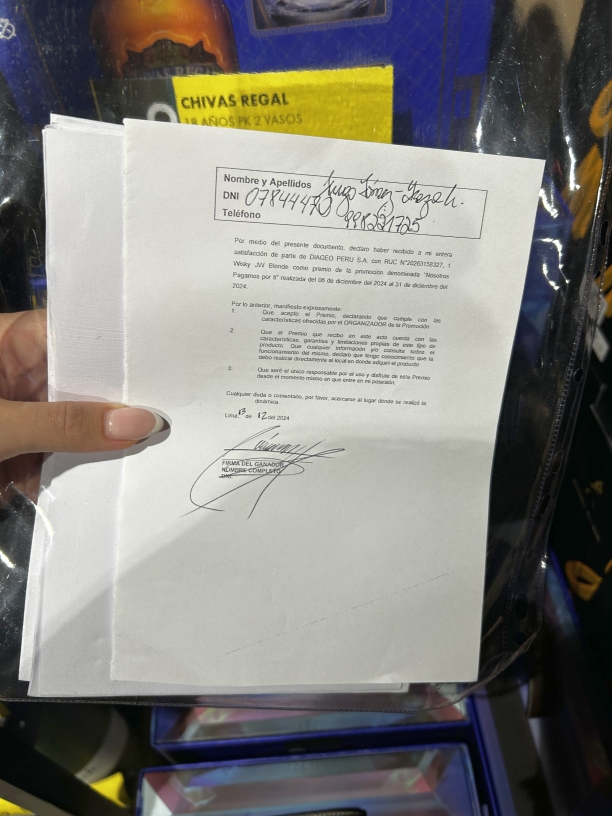 CHIVAS REGAL
18 AÑOS PK 2 VASOS
Nombre y Apellidos Hugo
DNI 07844470
Teléfono 998221725
Por medio del presente documento, declaro haber recibido a mi entera
satisfacción de parte de DIAGEO PERU S.A. con RUC N°20263158327, 1
Wisky JW Blonde como premio de la promoción denominada "Nosotros
Pagamos por ti" realizada del 06 de diciembre del 2024 al 31 de diciembre del
2024.
Por lo anterior, manifiesto expresamente:
1. Que acepto el Premio, declarando que cumple con las
características ofrecidas por el ORGANIZADOR de la Promoción
2. Que el Premio que recibo en este acto cuenta con las
características, garantías y limitaciones propias de este tipo de
producto. Que cualquier información y/o consulta sobre el
funcionamiento del mismo, declaro que tengo conocimiento que la
debo realizar directamente al local en donde adquirí el producto
3. Que seré el único responsable por el uso y disfrute de este Premio
desde el momento mismo en que entre en mi posesión.
Cualquier duda o comentario, por favor, acercarse al lugar donde se realizó la
dinámica.
Lima, 13 de 12 del 2024
FIRMA DEL GANADOR
NOMBRE COMPLETO
DNI: